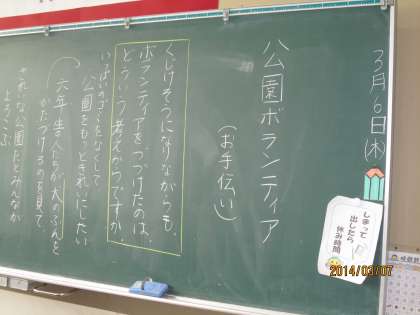 3月6日(木)
公園ボランティア
(お手伝い)
くじけそうになりながらも、
ボランティアをつづけたのは、
どういう考えからですか。
いっぱいのゴミをなくして
公園をもっときれいにしたい
六年生の人たちが犬のふんを
かたづけるのを見て、
きれいな公園だとみんなが
よろこぶ
しまって
出したら
休み時間
2014/03/07